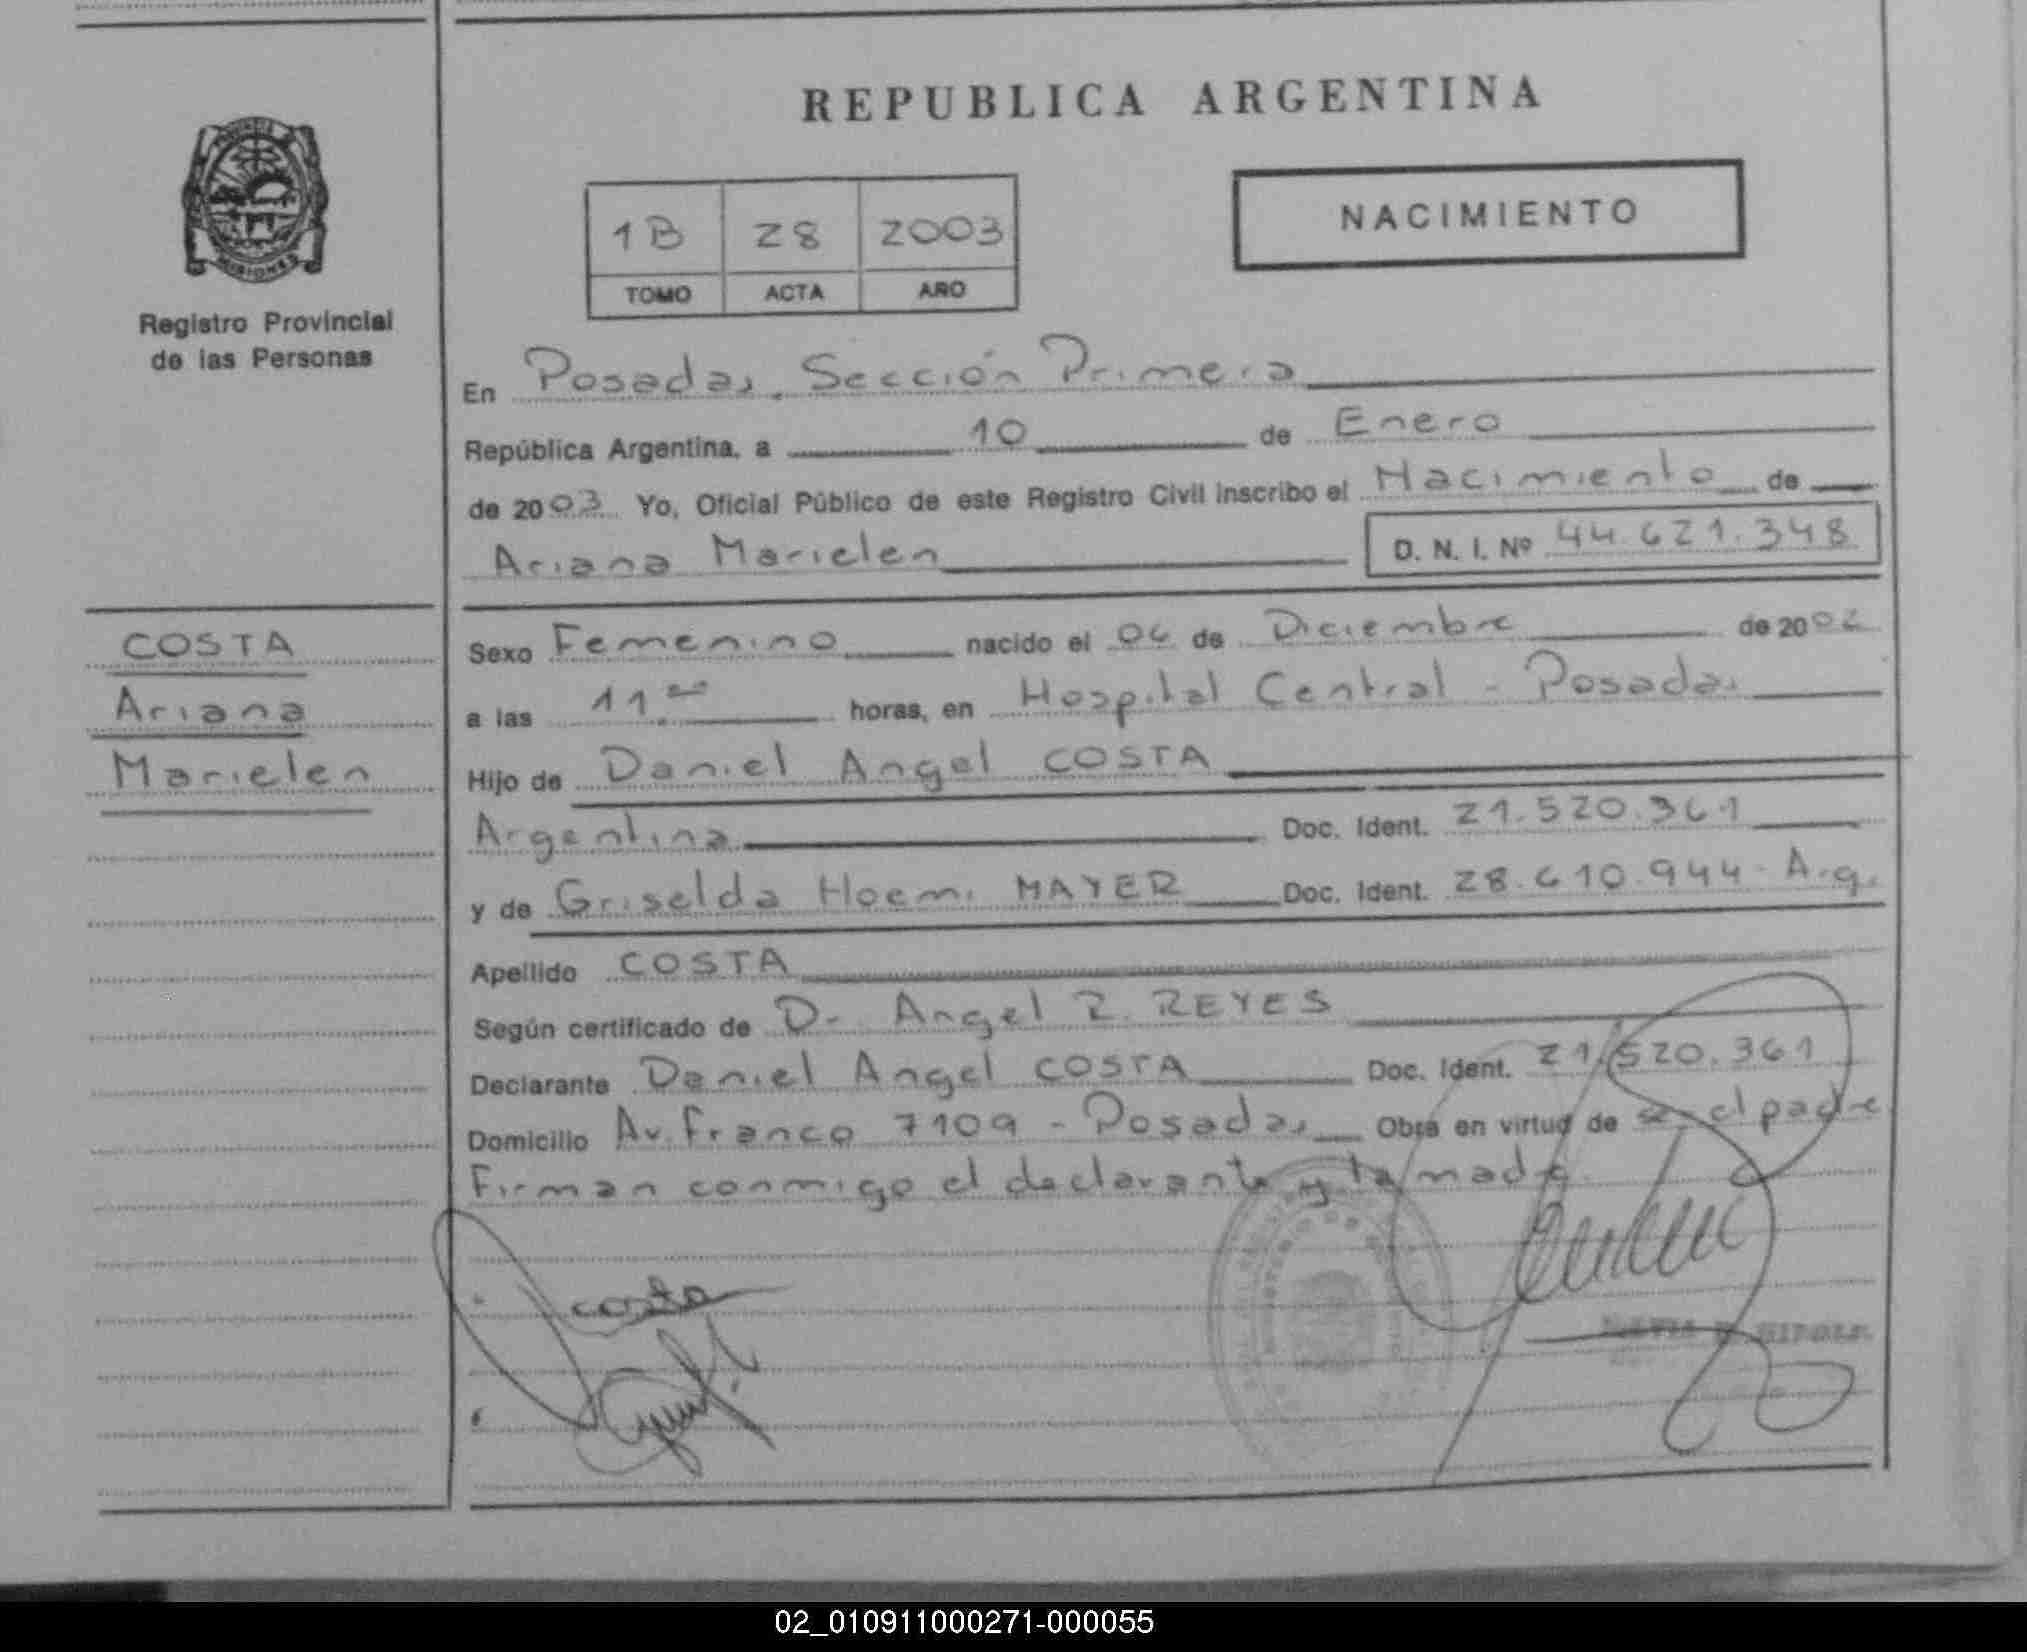 REPUBLICA ARGENTINA
NACIMIENTO
1B 28 2003
TOMO ACTA AÑO
MISIONES
Registro Provincial
de las Personas
En Posadas, Sección Primera
República Argentina, a 10 de Enero
de 2003 Yo, Oficial Público de este Registro Civil inscribo el Nacimiento de
Ariana Marielen D. N. I. Nº 44.621.348
COSTA
Ariana
Marielen
Sexo Femenino nacido el 06 de Diciembre de 2002
a las 11 horas, en Hospital Central - Posadas
Hijo de Daniel Angel COSTA
Argentina Doc. Ident. 21.520.361
y de Griselda Noemi MAYER Doc. Ident. 28.610.944 - Arg.
Apellido COSTA
Según certificado de Dr. Angel R. REYES
Declarante Daniel Angel COSTA Doc. Ident. 21.520.361
Domicilio Av. Franco 7109 - Posadas Obra en virtud de ser el padre
Firman conmigo el declarante y la madre.
costa
02_010911000271-000055